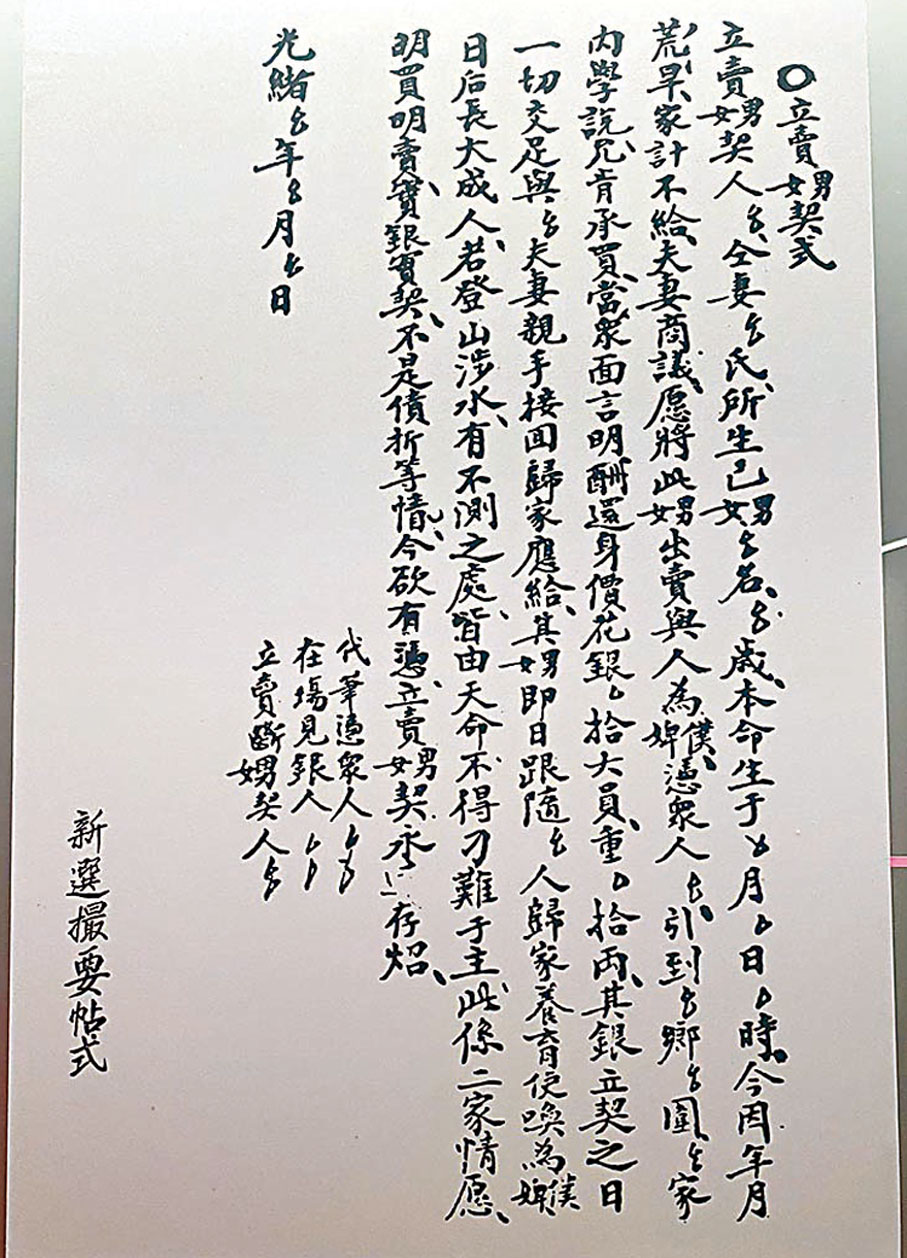 ○立賣男女契式
立賣男女契人厶、仝妻厶氏、所生己男女厶名、厶歲、本命生于厶月厶日厶時、今因年月
荒旱、家計不給、夫妻商議、愿將此男女出賣與人為僕婢、憑衆人厶、引到厶鄉厶圍厶家
内學説、允肯承買、當衆面言明、酬還身價花銀厶拾大員、重厶拾両、其銀立契之日
一切交足與厶夫妻親手接回歸家應給、其男女即日跟隨厶人歸家養育使喚為僕婢
日后長大成人、若登山涉水、有不測之處、皆由天命、不得刁難于主、此係二家情愿、
明買明賣、實銀實契、不是債折等情、今欲有憑、立賣男女契永存炤、
代筆憑衆人厶厶
在塲見銀人厶厶
立賣斷男女契人厶
光緒厶年厶月厶日
新選撮要帖式